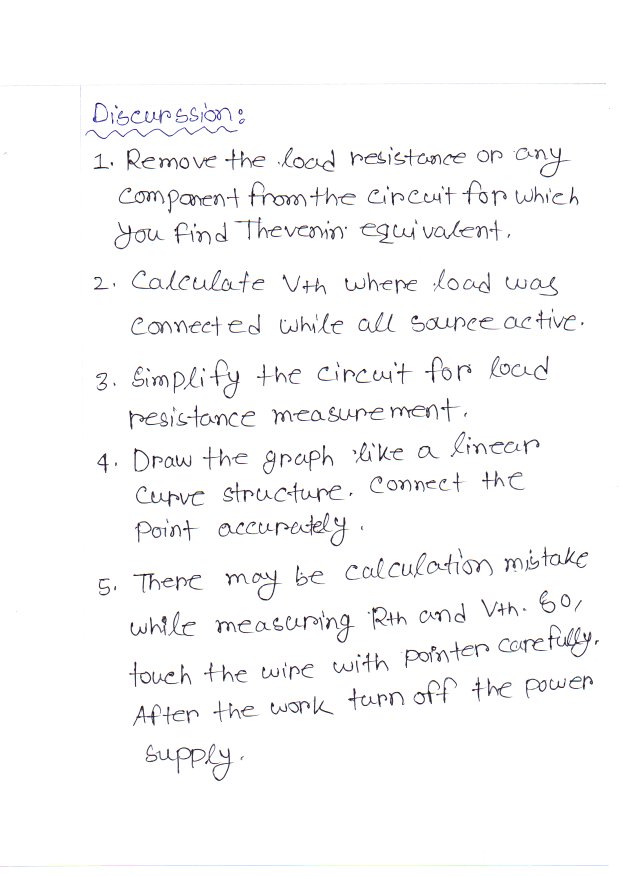 Discurssion:
1. Remove the load resistance or any
component from the circuit for which
you find Thevenin equivalent.
2. Calculate Vth where load was
connected while all source active.
3. Simplify the circuit for load
resistance measurement.
4. Draw the graph like a linear
curve structure. Connect the
point accurately.
5. There may be calculation mistake
while measuring Rth and Vth. So,
touch the wire with pointer carefully.
After the work turn off the power
supply.